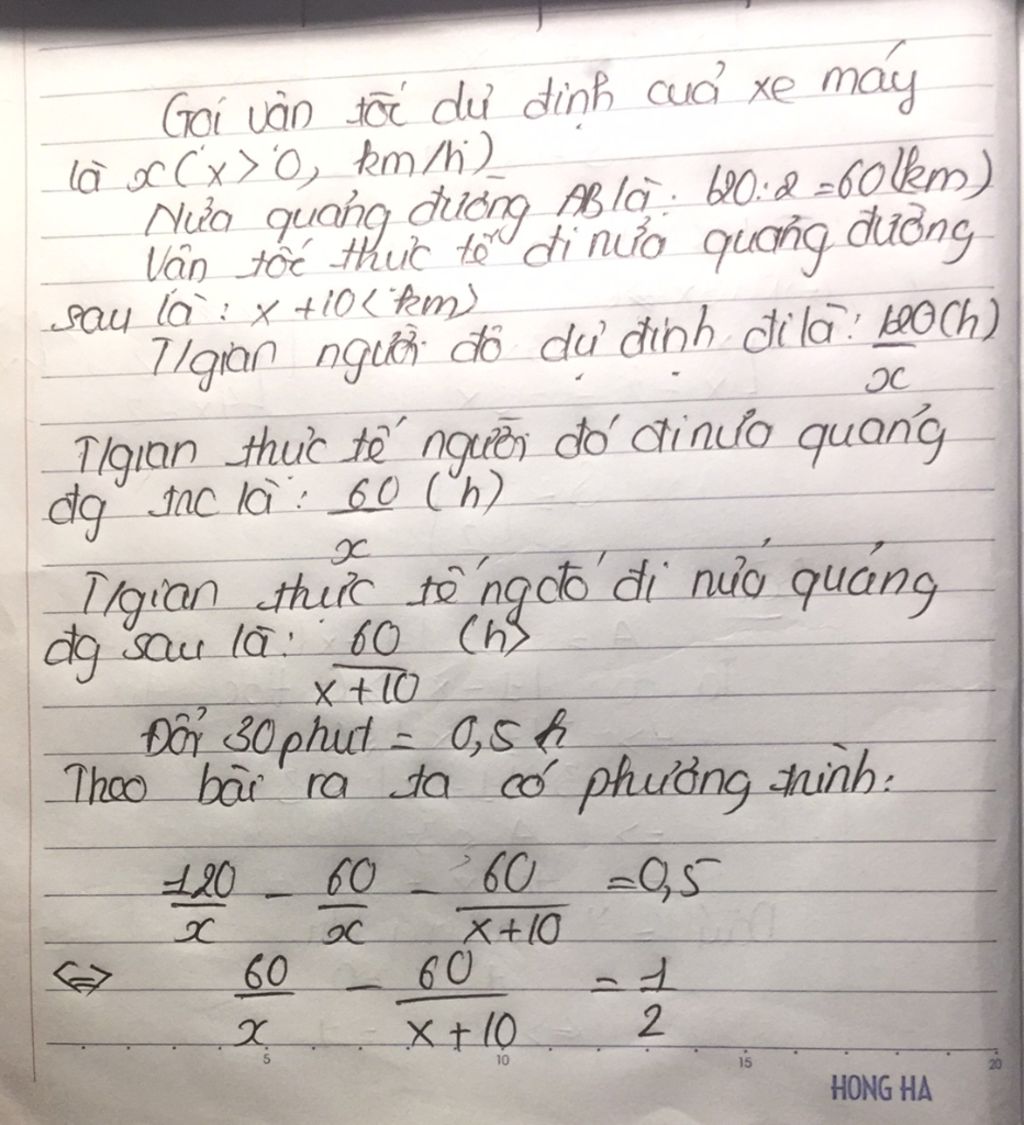 Gọi vận tốc dự định của xe máy
là x (x > 0, km/h)
Nửa quãng đường AB là: 120 : 2 = 60 (km)
Vận tốc thực tế đi nửa quãng đường
sau là: x + 10 (km)
T/gian người đó dự định đi là: 120/x (h)
T/gian thực tế người đó đi nửa quãng
đg trc là: 60/x (h)
T/gian thực tế ng đó đi nửa quãng
đg sau là: 60/(x+10) (h)
Đổi 30 phút = 0,5 h
Theo bài ra ta có phương trình:
120/x - 60/x - 60/(x+10) = 0,5
⇔ 60/x - 60/(x+10) = 1/2
5 10 15 20
HONG HA